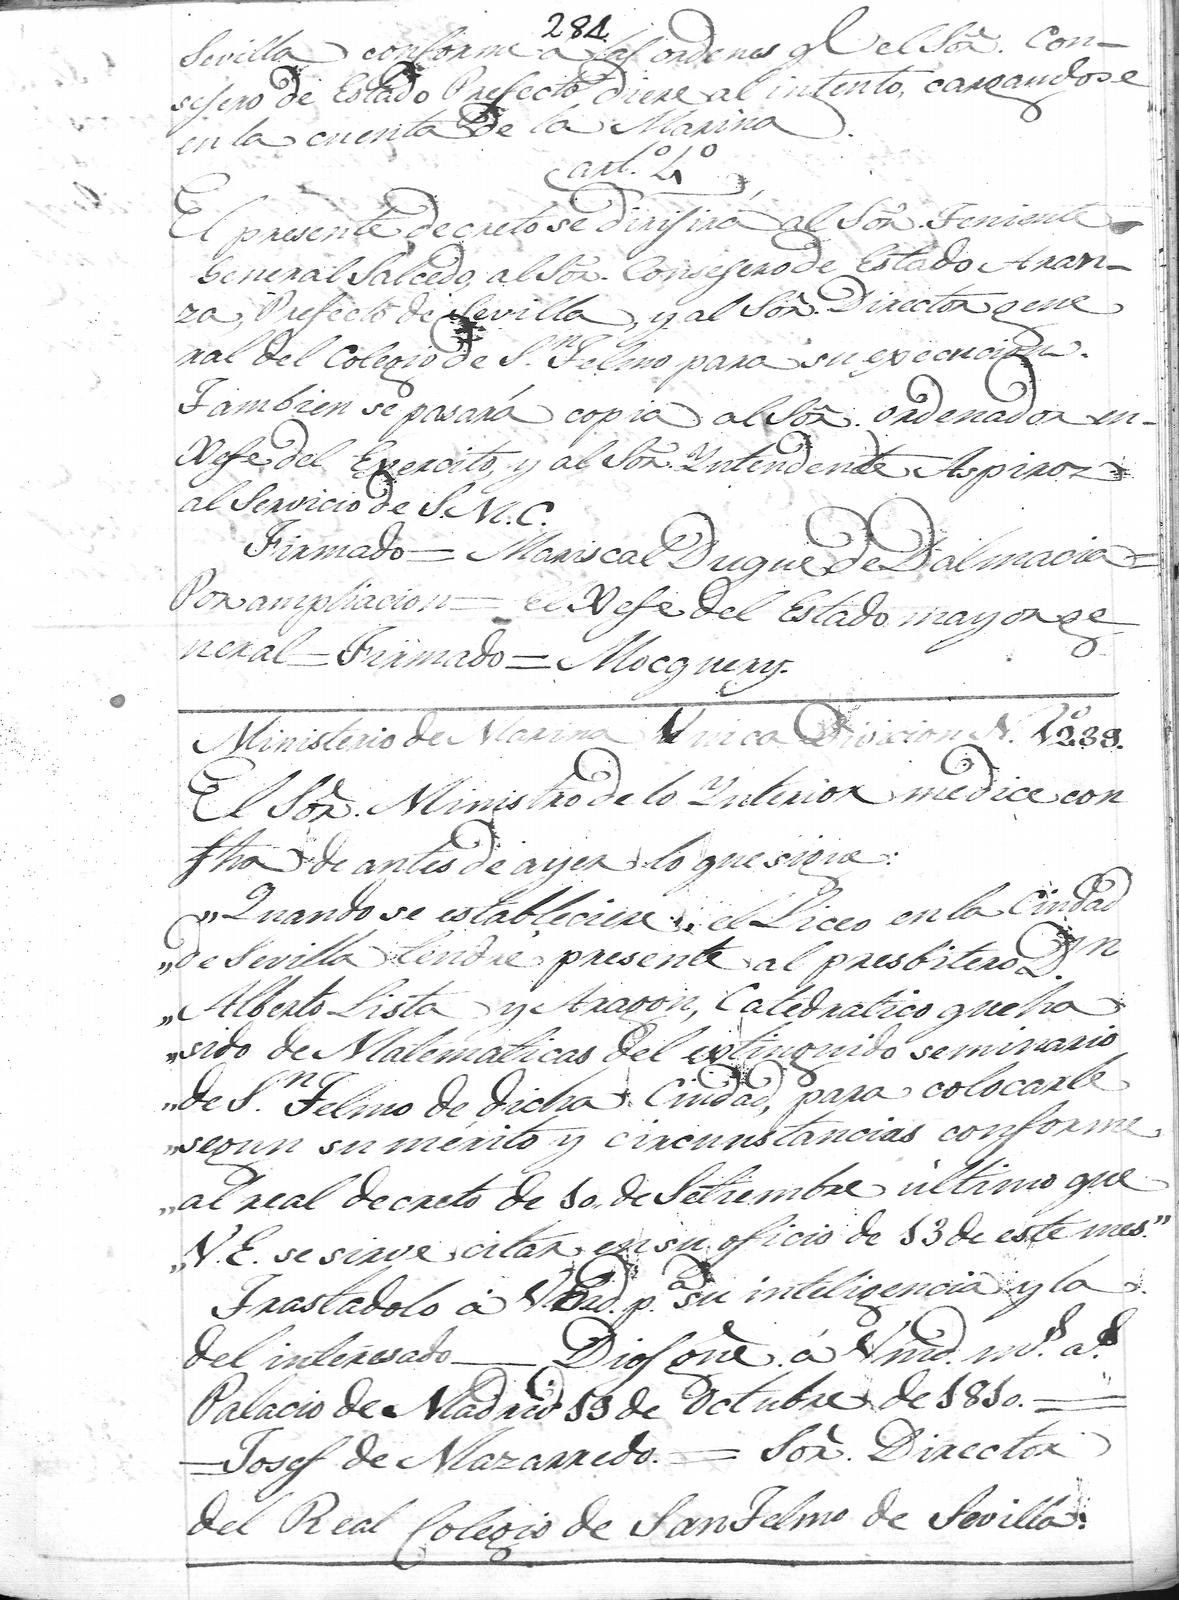 284.
Sevilla conforme a las ordenes qe. el Sõr. Con-
sejero de Estado Prefecto diere al intento, cargandose
en la cuenta de la Marina.
art.º 4º
El presente decreto se dirijirá al Sõr. Teniente
General Salcedo, al Sõr. Consegero de Estado Aran-
za, Prefecto de Sevilla, y al Sõr. Director gene
ral del Colegio de S.n Telmo para su execucion.
Tambien se pasará copia al Sõr. ordenador en-
Xefe del Exercito, y al Sõr. Yntendente Aspiroz
al Servicio de S. M. C.
Firmado = Mariscal Duque de Dalmacia =
Por ampliacion = El Xefe del Estado mayor ge
neral = Firmado = Mocquery.
Ministerio de Marina Vnica Division N.º 1239.
El Sõr. Ministro de lo Ynterior me dice con
fha de antes de ayer lo que sigue:
„Quando se estableciere el Liceo en la Ciudad
„de Sevilla tendré presente al presbitero D.n
„Alberto Lista y Aragon, Catedratico que ha
„sido de Matematicas del extinguido seminario
„de S.n Telmo de dicha Ciudad, para colocarle
„segun su mérito y circunstancias conforme
„al real decreto de 10. de Setiembre último que
„V. E. se sirve citar en su oficio de 13 de este mes."
Trasladolo á Vmd. p.a su inteligencia y la
del interesado — Dios gũe. á Vmd. m.s a.s
Palacio de Madrid 19 de Octubre de 1810. =
= Josef de Mazarredo. = Sõr. Director
del Real Colegio de San Telmo de Sevilla.